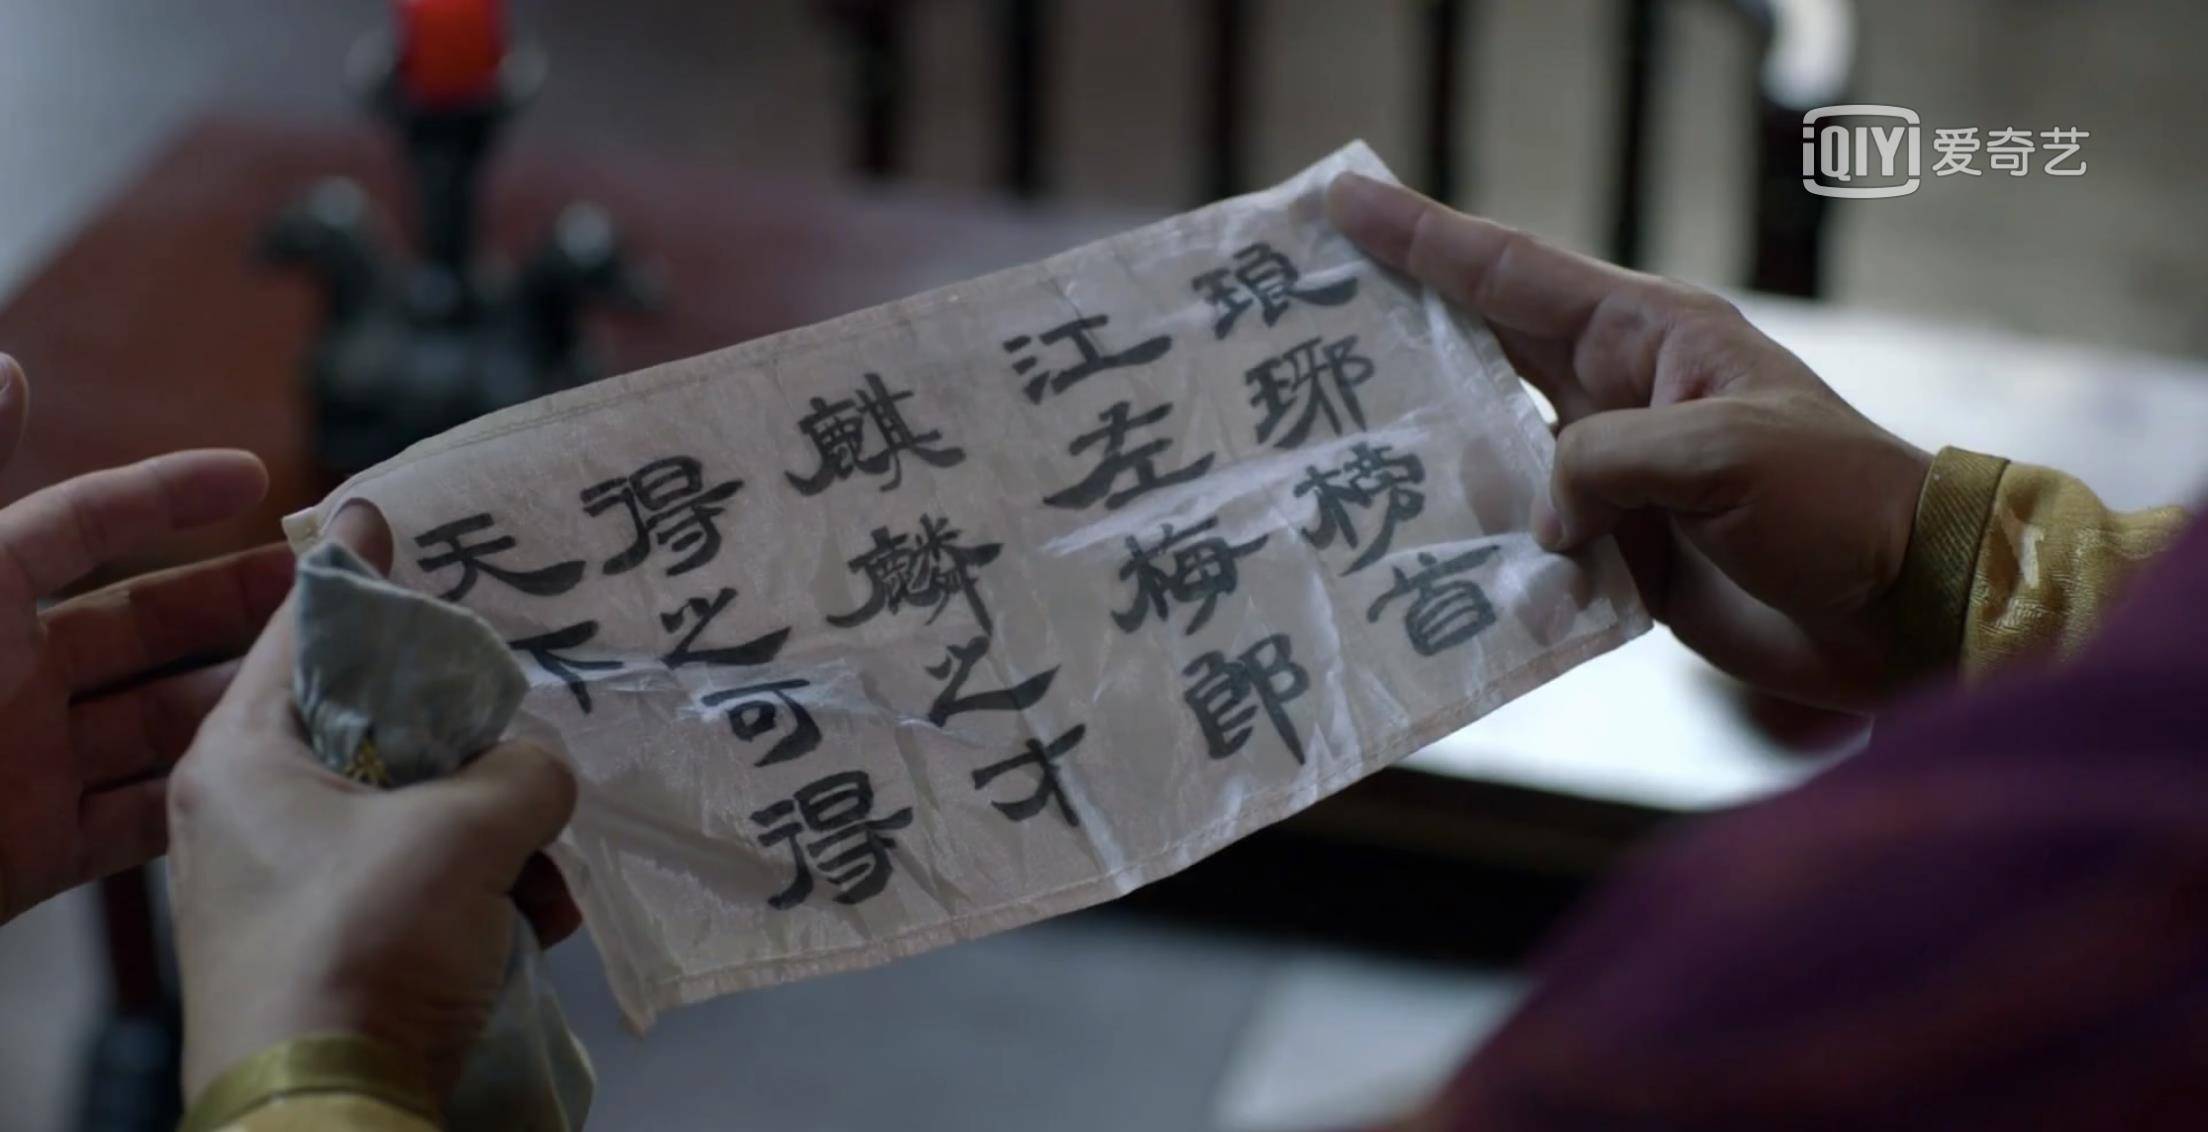 琅琊榜首
江左梅郎
麒麟之才
得之可得
天下
iQIYI 爱奇艺